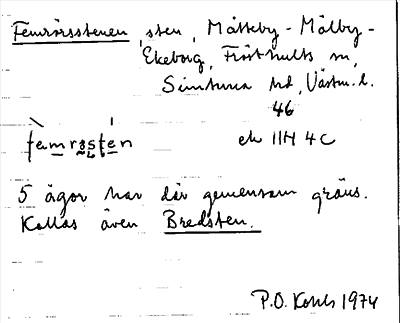 Femrörsstenen, sten, Mälteby - Målby -
Ekeborg, Frösthults sn,
Simtuna hd, Västm. l.
46
fämrɷstén
ek 11H 4c
5 ägor har där gemensam gräns.
Kallas även Bredsten.
P.O. Kohls 1974